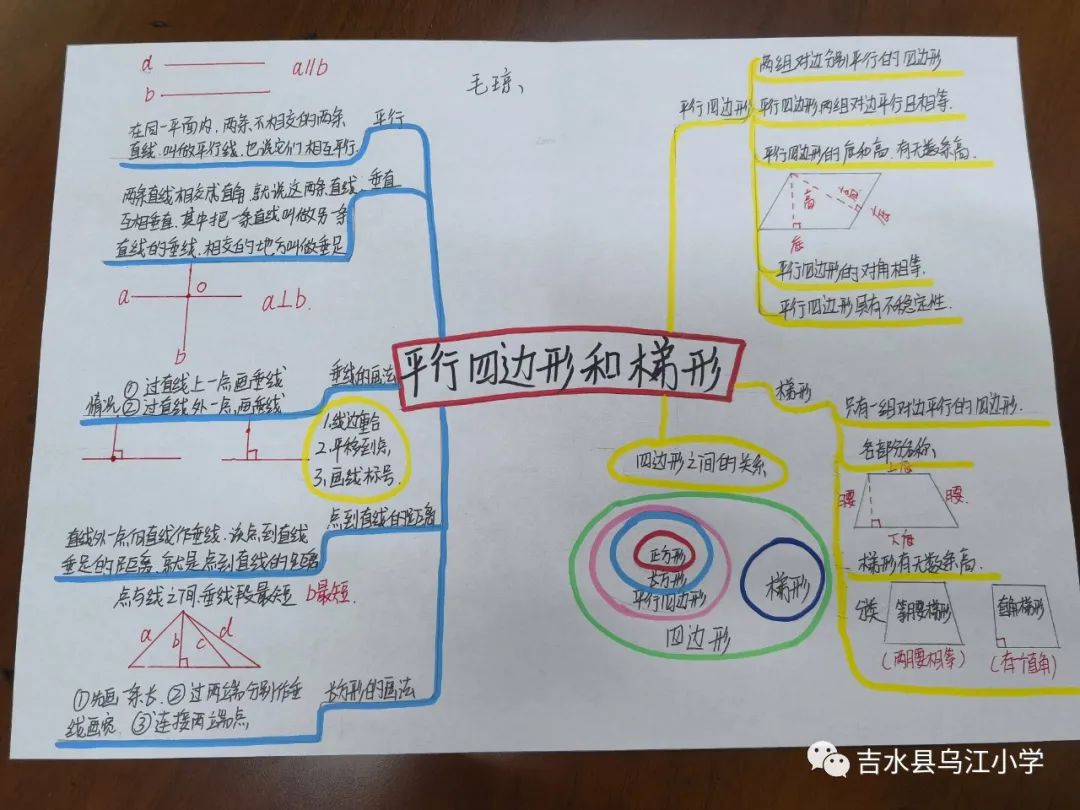 平行四边形和梯形
毛琼
a
b
a∥b
平行
在同一平面内,两条不相交的两条
直线,叫做平行线,也说它们相互平行.
垂直
两条直线相交成直角,就说这两条直线
互相垂直,其中把一条直线叫做另一条
直线的垂线,相交的地方叫做垂足
a
O
a⊥b.
b
垂线的画法
情况
①过直线上一点画垂线
②过直线外一点,画垂线
1.线边重合
2.平移到点
3.画线标号.
点到直线的距离
直线外一点向直线作垂线.该点到直线
垂足的距离,就是点到直线的距离
点与线之间,垂线段最短 b最短.
a b c d
长方形的画法
①先画一条长,②过两端分别作垂
线画宽,③连接两端点
平行四边形
两组对边分别平行的四边形
平行四边形两组对边平行且相等.
平行四边形的底和高,有无数条高.
高
高
底
底
平行四边形的对角相等.
平行四边形具有不稳定性.
梯形
只有一组对边平行的四边形.
各部分名称、
上底
腰
腰
下底
梯形有无数条高.
分类
等腰梯形
直角梯形
(两腰相等)
(有个直角)
四边形之间的关系
正方形
长方形
平行四边形
四边形
梯形
吉水县乌江小学